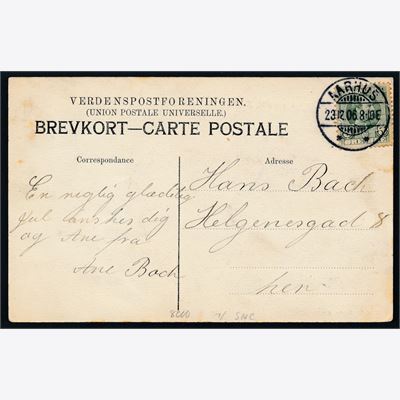 VERDENSPOSTFORENINGEN.
(UNION POSTALE UNIVERSELLE.)
BREVKORT—CARTE POSTALE
AARHUS
23.12.06. 8-10E
Correspondance
Adresse
En rigtig glædelig
Jul ønskes dig
og Ane fra
Ane Bach
Hans Bach
Helgenesgad 8
her
8000